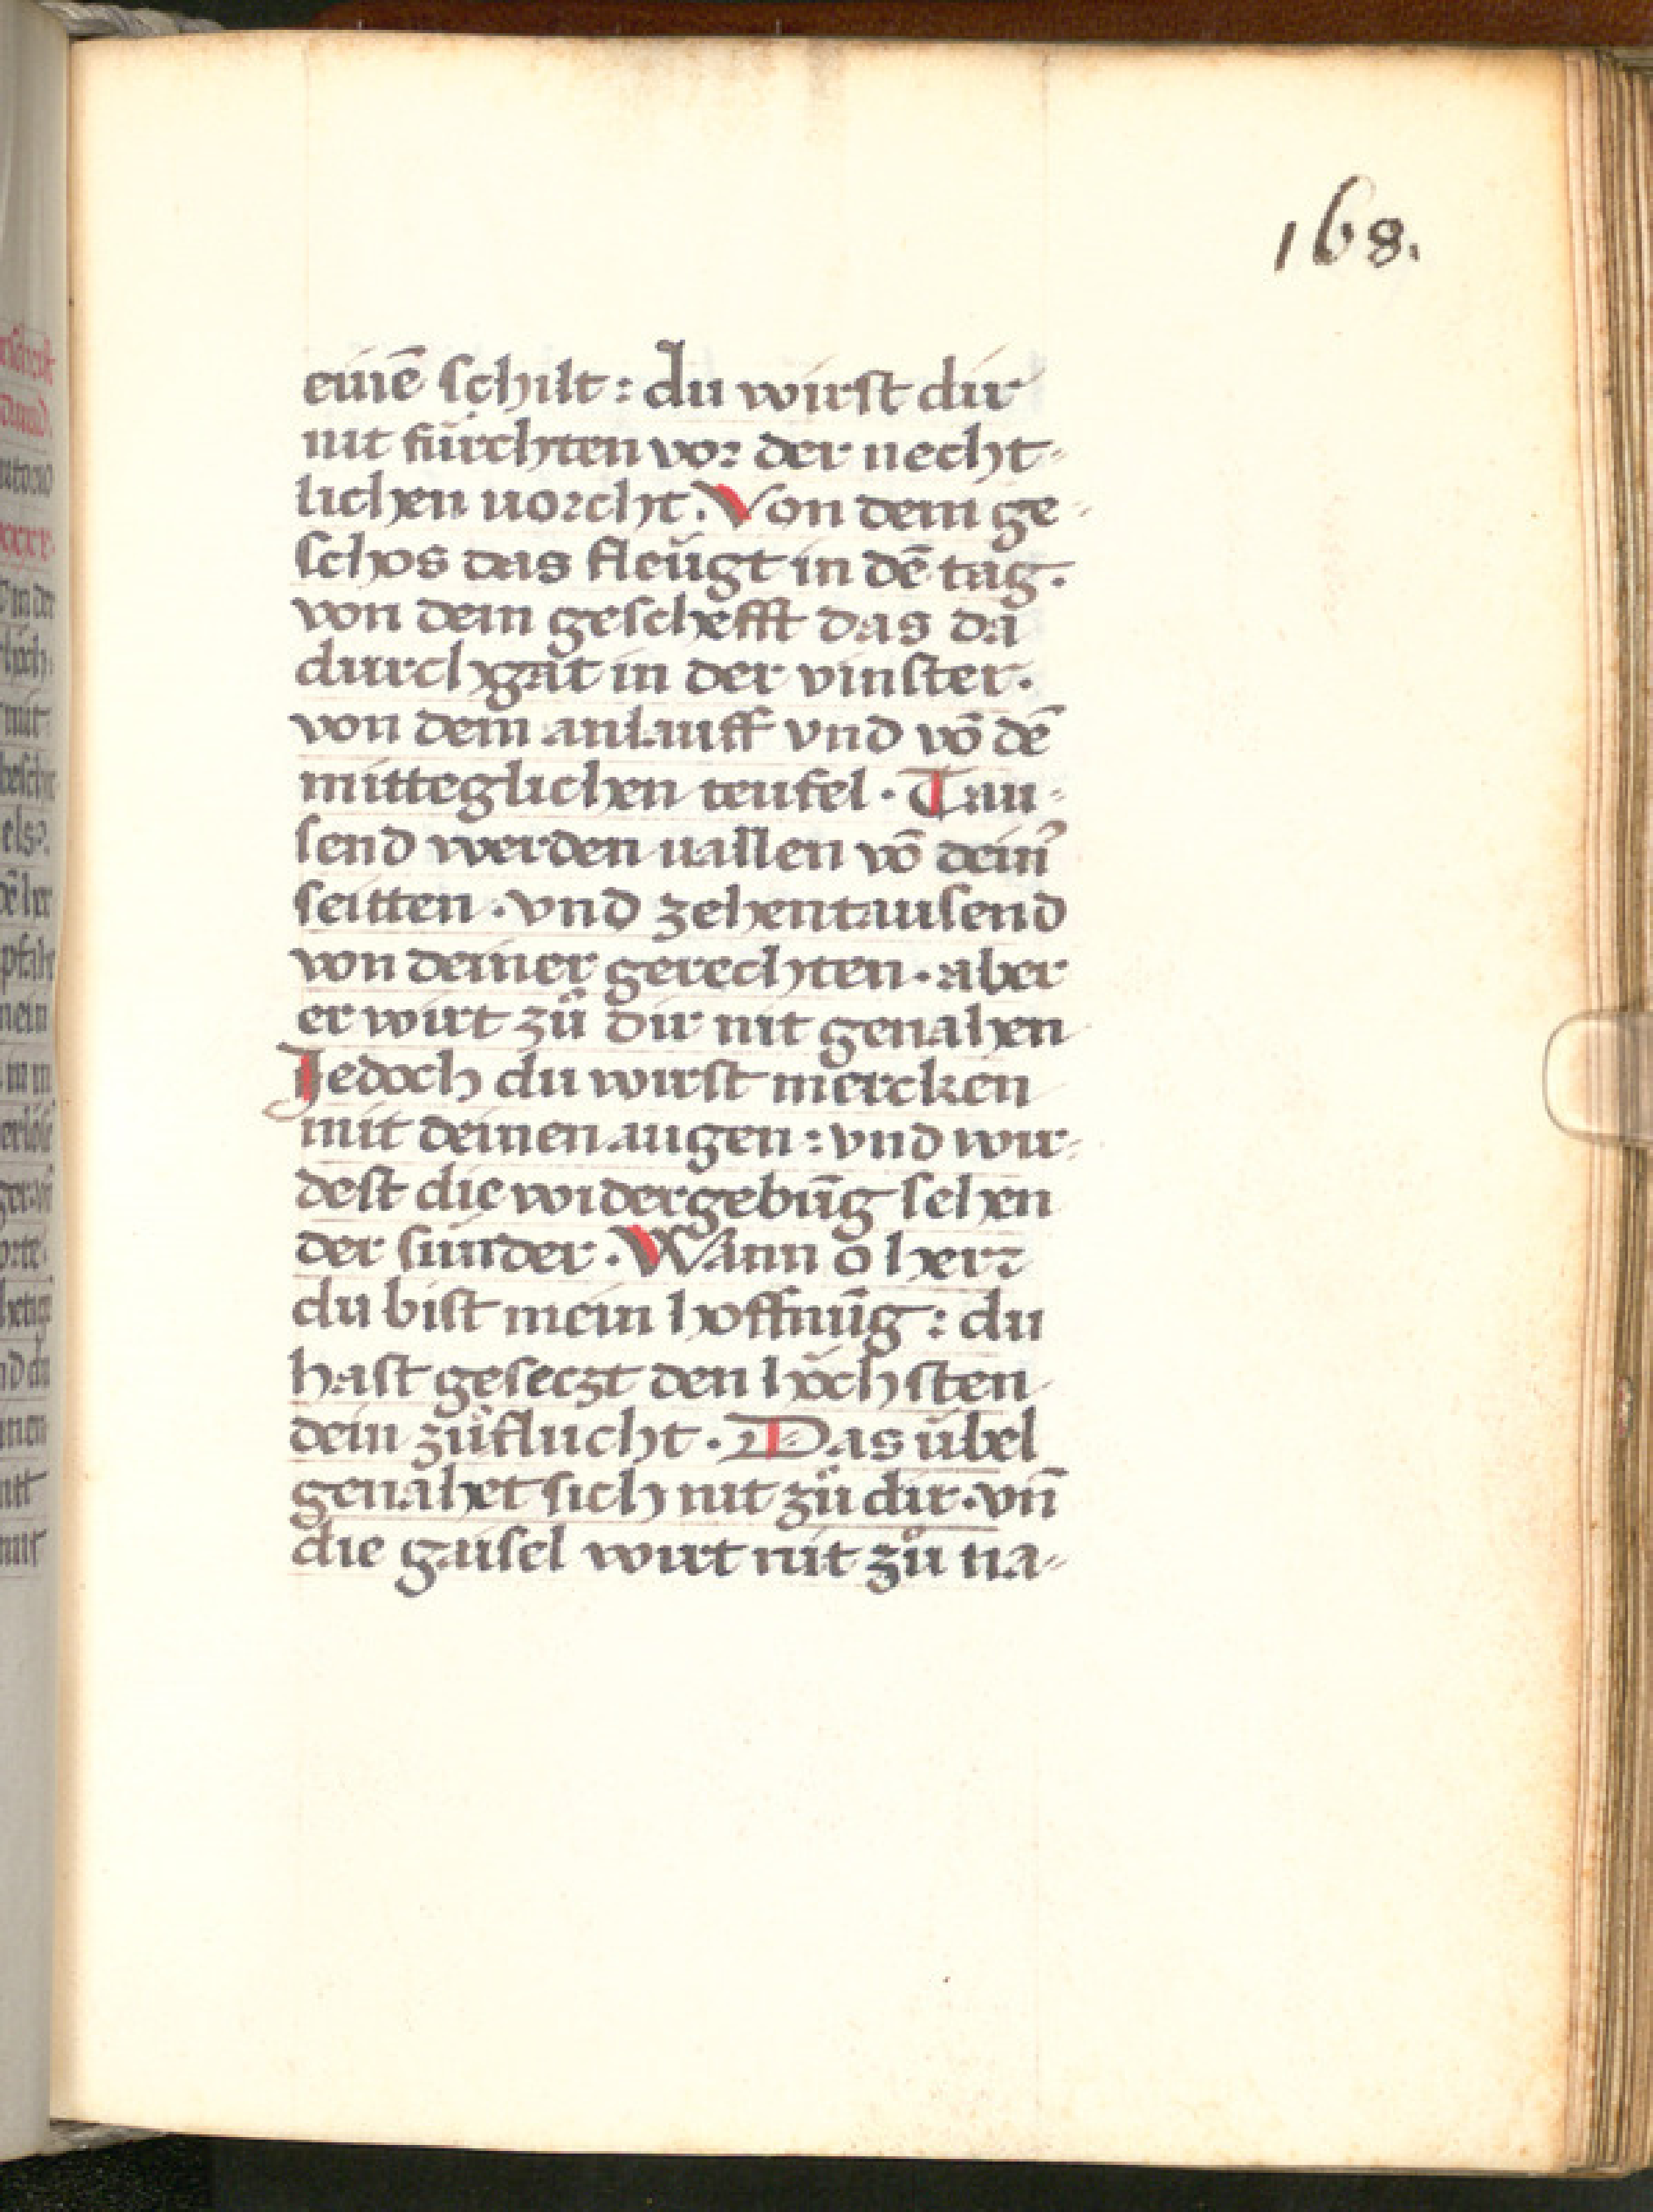 168.
einē schilt : du wirst dir
nit fürchten vor der necht-
lichen uorcht. Von dem ge-
schos das fleügt in dē tag.
von dem geschefft das da
durchgat in der vinster.
von dem anlauff vnd vō dē
mitteglichen teufel. Tau-
send werden uallen vō dein̉
seitten. vnd zehentausend
von deiner gerechten. aber
er wirt zů dir nit genahen
Jedoch du wirst mercken
mit deinen augen : vnd wir-
dest die widergebūg sehen
der sünder. Wann o herr
du bist mein hoffnūg : du
hast geseczt den höchsten
dein zůflucht. Das übel
genahet sich nit zů dir. vn̄
die gaisel wirt nit zů na-